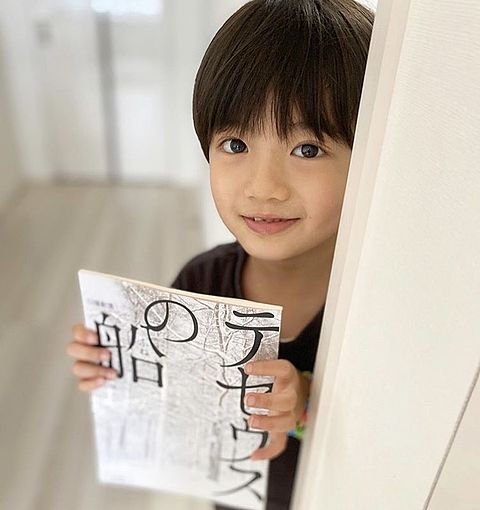 テセウス
の
船